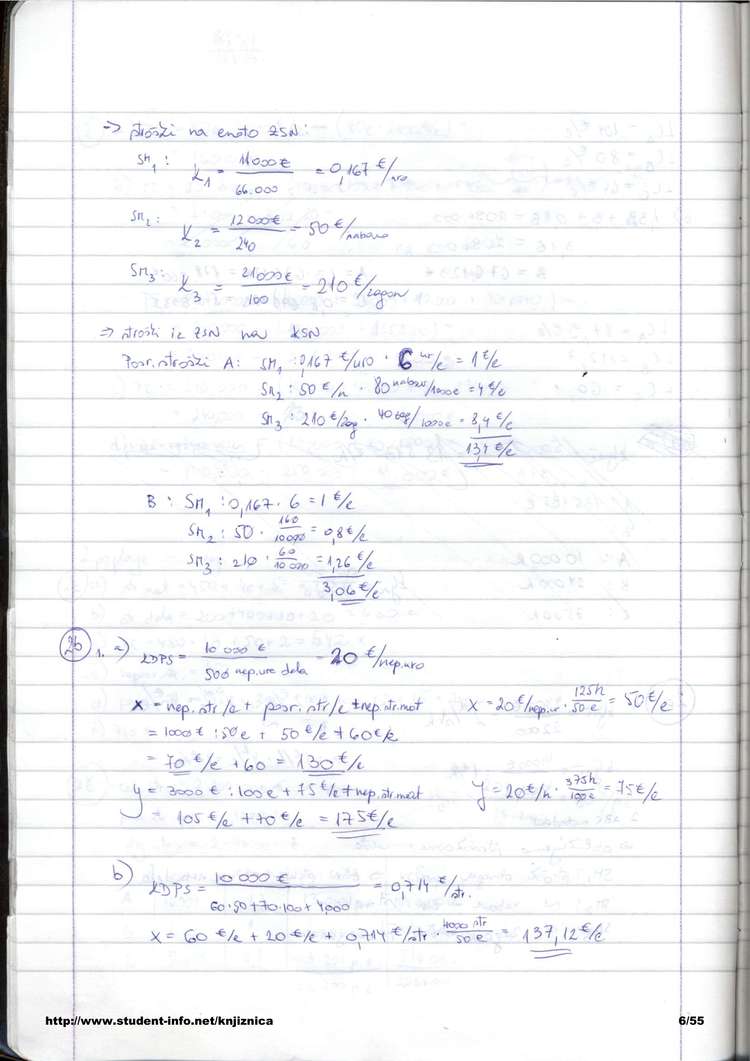 => stroški na enoto ZSN:
SM1: K1 = 11000 € / 66.000 = 0,167 €/uro
SM2: K2 = 12000 € / 240 = 50 €/nabavo
SM3: K3 = 21000 € / 100 = 210 €/zagon
=> stroški iz ZSN na KSN
Posr. stroški A: SM1: 0,167 €/uro · 6 ur/e = 1 €/e
SM2: 50 €/n · 80 nabav/1000e = 4 €/e
SM3: 210 €/zag · 40 zag/1000e = 8,4 €/e
13,4 €/e
B: SM1: 0,167 · 6 = 1 €/e
SM2: 50 · 160/10000 = 0,8 €/e
SM3: 210 · 60/10000 = 1,26 €/e
3,06 €/e
26 1. a) KDPS = 10 000 € / 500 nep. ure dela = 20 €/nep.uro
X = nep. str/e + posr. str/e + nep. str. mat X = 20 €/nep.ur · 125h/50e = 50 €/e
= 1000 € : 50e + 50 €/e + 60 €/e
= 70 €/e + 60 = 130 €/e
y = 3000 € : 100e + 75 €/e + nep. str. mat y = 20 €/h · 375h/100e = 75 €/e
= 105 €/e + 70 €/e = 175 €/e
b) KDPS = 10 000 € / 60·50 + 70·100 + 4000 = 0,714 €/str.
X = 60 €/e + 20 €/e + 0,714 €/str · 4000 str/50 e = 137,12 €/e
http://www.student-info.net/knjiznica 6/55